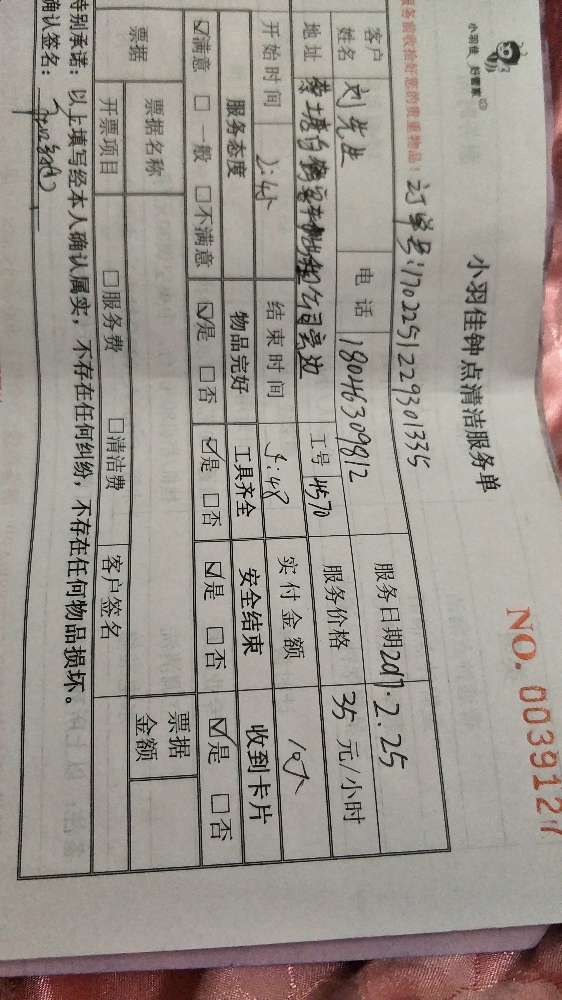 小羽佳 好管家
小羽佳钟点清洁服务单
NO. 0039127
服务前收拾好您的贵重物品！ 订单号:1702251229301335
服务日期 2017.2.25
客户姓名 刘先生 电话 18046309812
服务价格 35 元/小时
地址 工号 4570
开始时间 2:45 结束时间 5:48 实付金额 105
服务态度 物品完好 工具齐全 安全结束 收到卡片
☑满意 □一般 □不满意 ☑是 □否 ☑是 □否 ☑是 □否 ☑是 □否
票据 票据名称 票据金额
开票项目 □服务费 □清洁费 客户签名
特别承诺：以上填写经本人确认属实，不存在任何纠纷，不存在任何物品损坏。
确认签名：